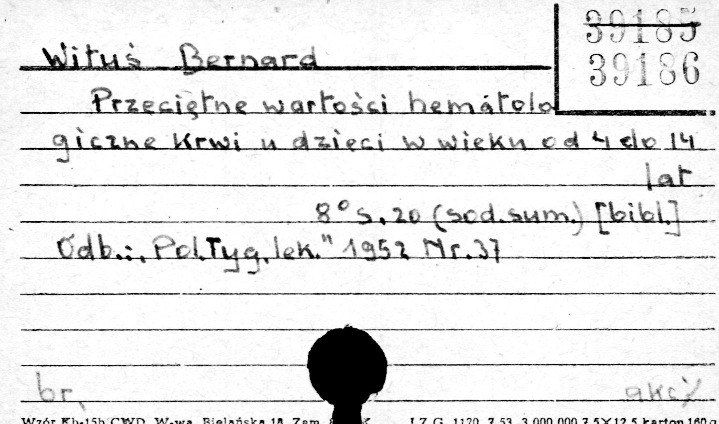 39185
39186
Wituś Bernard
Przeciętne wartości hematolo
giczne krwi u dzieci w wieku od 4 do 14
lat
8° s. 20 (sod. sum.) [bibl.]
Odb.: „Pol. Tyg. lek." 1952 Nr. 37
br. akc/
Wzór Kb-15b CWD, W-wa, Bielańska 18 Zam. Ł.Z.G. 1120 7.53 3.000.000 7,5×12,5 karton 160 g